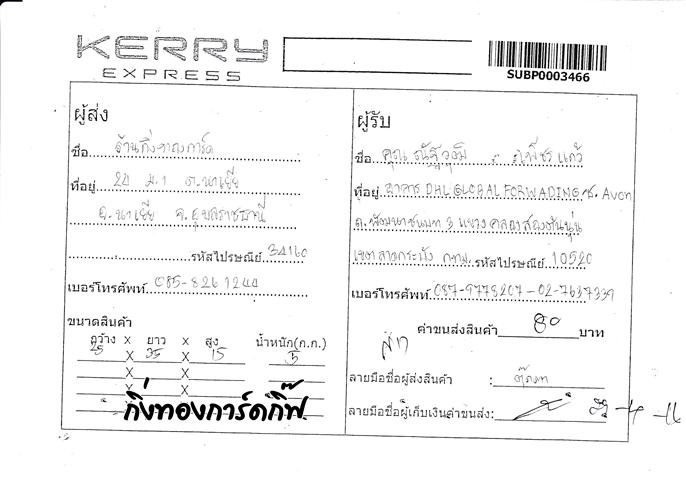 KERRY
EXPRESS
SUBP0003466
ผู้ส่ง
ชื่อ ร้านกิ่งทองการ์ด
ที่อยู่ 20 ม.1 ต.นาเยีย
อ.นาเยีย จ.อุบลราชธานี
รหัสไปรษณีย์ 34160
เบอร์โทรศัพท์ 085-826 1244
ขนาดสินค้า
กว้าง X ยาว X สูง น้ำหนัก(ก.ก.)
25 X 35 X 15 5
X X
X X
X
กิ่งทองการ์ดกิ๊ฟ
ผู้รับ
ชื่อ คุณ ณัฐวุฒิ เพ็ชรแก้ว
ที่อยู่ อาคาร DHL GLOBAL FORWADING ซ. Avon
ถ.พัฒนาชนบท 3 แขวง คลองสองต้นนุ่น
เขตลาดกระบัง กทม. รหัสไปรษณีย์ 10520
เบอร์โทรศัพท์ 087-9778207 - 02-7637339
ค่าขนส่งสินค้า 80 บาท
ลายมือชื่อผู้ส่งสินค้า :
ลายมือชื่อผู้เก็บเงินค่าขนส่ง: